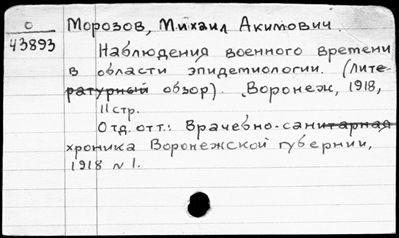 О
43893
Морозов, Михаил Акимович.
Наблюдения военного времени
в области эпидемиологии. (Лите-
ратурный обзор). Воронеж, 1918,
11 стр.
Отд. отт.: Врачебно-санитарная
хроника Воронежской губернии,
1918 N 1.